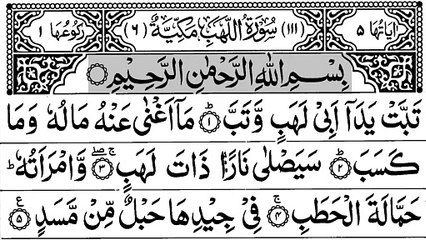 اٰيَاتُهَا ٥ (١١١) سُوْرَةُ اللَّهَبِ مَكِّيَّةٌ (٦) رُكُوْعُهَا ١
بِسْمِ اللّٰهِ الرَّحْمٰنِ الرَّحِيْمِ
تَبَّتْ يَدَاۤ اَبِيْ لَهَبٍ وَّتَبَّ ؕ﴿١﴾ مَاۤ اَغْنٰى عَنْهُ مَالُهٗ وَمَا
كَسَبَ ؕ﴿٢﴾ سَيَصْلٰى نَارًا ذَاتَ لَهَبٍ ۚۖ﴿٣﴾ وَّامْرَاَتُهٗ ؕ
حَمَّالَةَ الْحَطَبِ ۚ﴿٤﴾ فِيْ جِيْدِهَا حَبْلٌ مِّنْ مَّسَدٍ ﴿٥﴾ ع